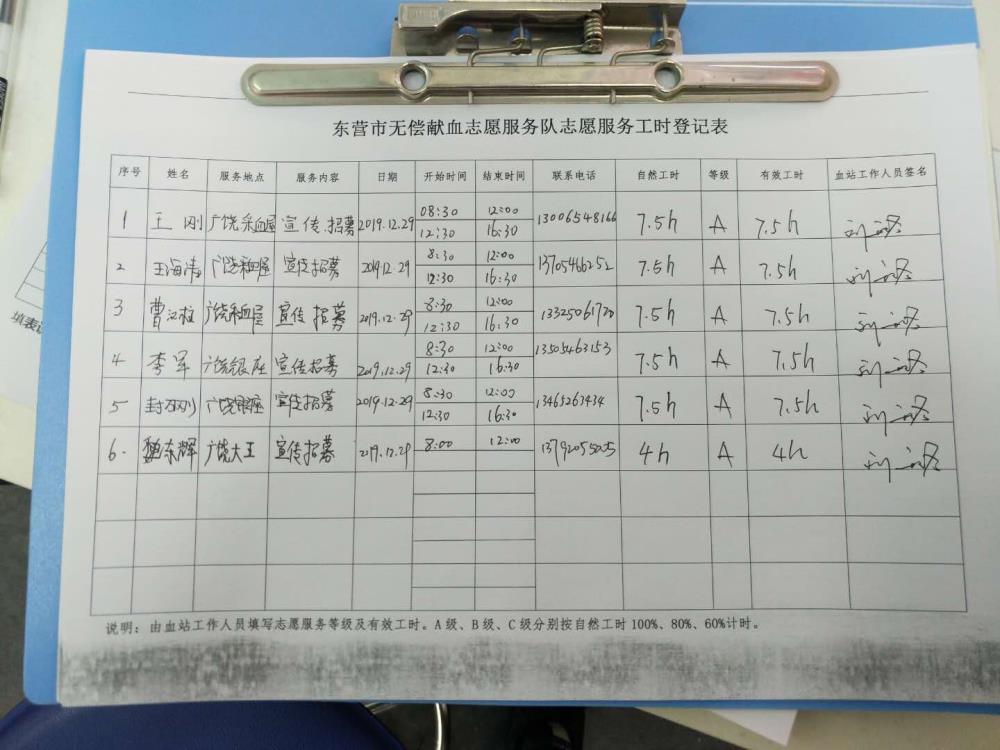 东营市无偿献血志愿服务队志愿服务工时登记表
序号 姓名 服务地点 服务内容 日期 开始时间 结束时间 联系电话 自然工时 等级 有效工时 血站工作人员签名
1 王刚 广饶采血屋 宣传、招募 2019.12.29 08:30 12:00 13006548166 7.5h A 7.5h
12:30 16:30
2 王海涛 广饶采血屋 宣传招募 2019.12.29 8:30 12:00 13705466252 7.5h A 7.5h
12:30 16:30
3 曹江柱 广饶采血屋 宣传招募 2019.12.29 8:30 12:00 13325061720 7.5h A 7.5h
12:30 16:30
4 李军 广饶银座 宣传招募 2019.12.29 8:30 12:00 13505463153 7.5h A 7.5h
12:30 16:30
5 广饶银座 宣传招募 2019.12.29 8:30 12:00 13465267434 7.5h A 7.5h
12:30 16:30
6. 魏东辉 广饶大王 宣传招募 2019.12.29 8:00 12:00 13792055025 4h A 4h
说明：由血站工作人员填写志愿服务等级及有效工时。A级、B级、C级分别按自然工时100%、80%、60%计时。
填表